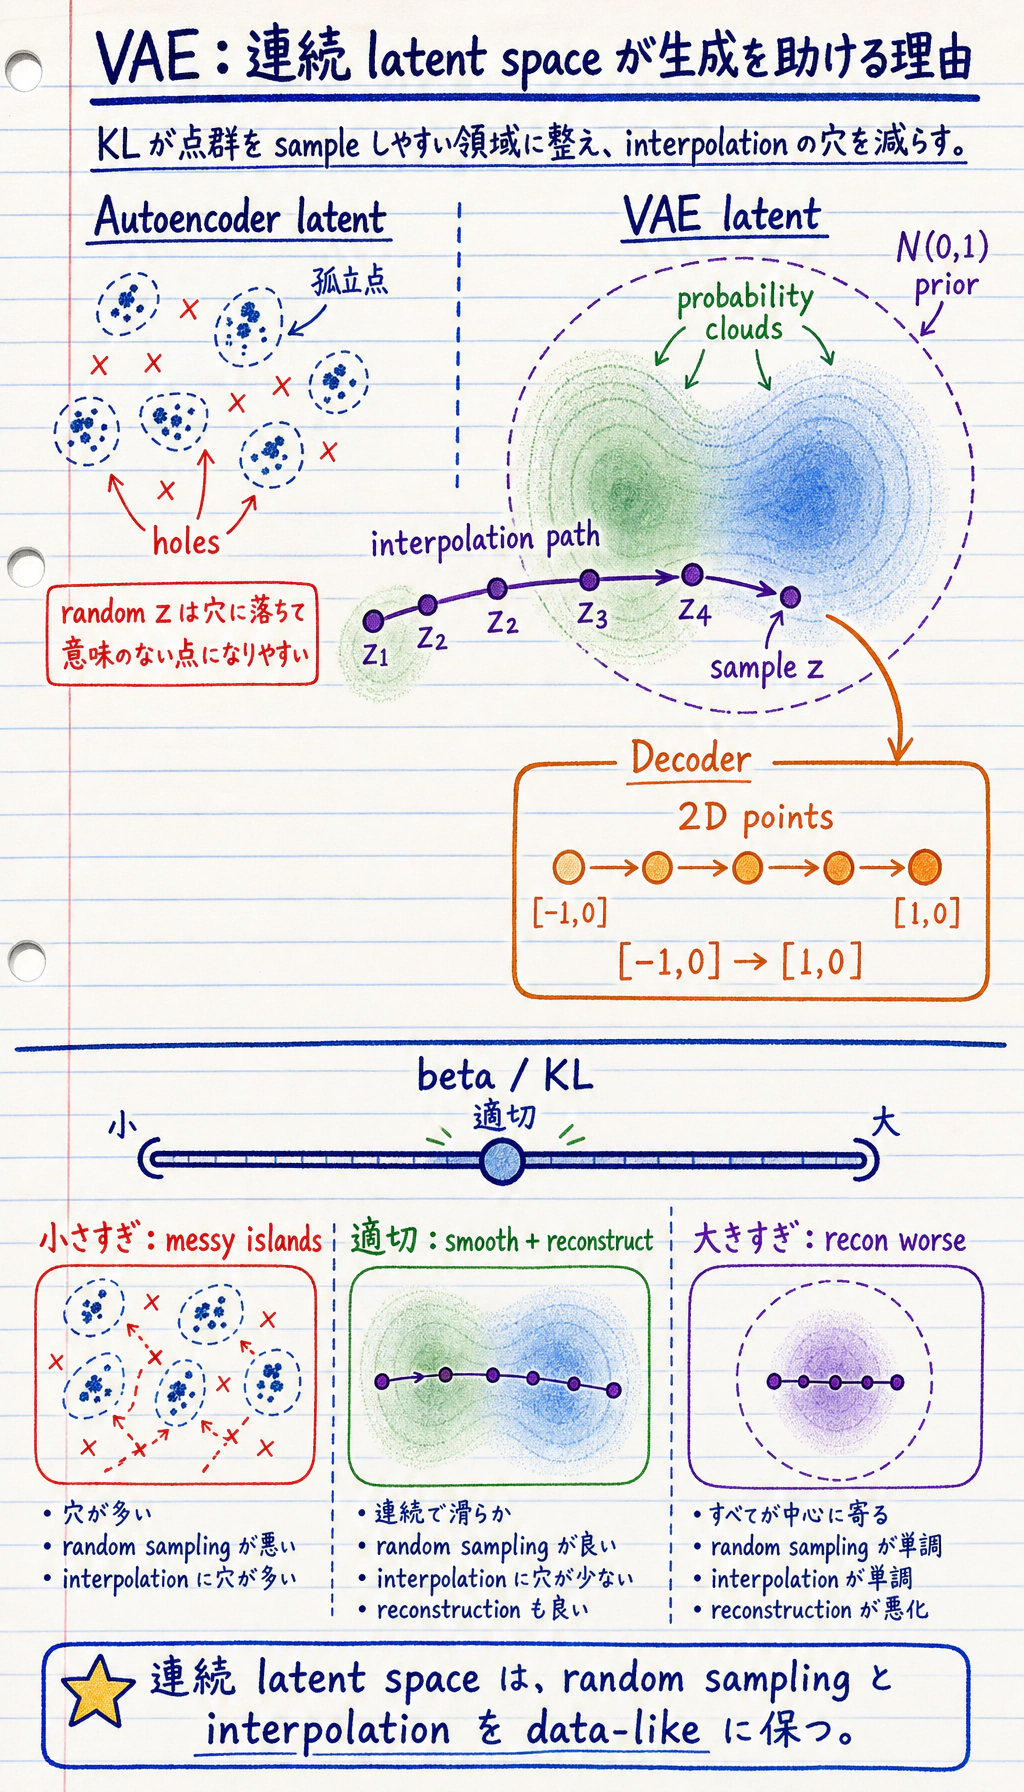 VAE：連続 latent space が生成を助ける理由
KL が点群を sample しやすい領域に整え、interpolation の穴を減らす。
Autoencoder latent
孤立点
holes
random z は穴に落ちて
意味のない点になりやすい
VAE latent
N(0,1)
prior
probability
clouds
interpolation path
z1
z2
z2
z3
z4
sample z
Decoder
2D points
[-1,0]
[1,0]
[-1,0] → [1,0]
beta / KL
小
適切
大
小さすぎ：messy islands
・穴が多い
・random sampling が悪い
・interpolation に穴が多い
適切：smooth + reconstruct
・連続で滑らか
・random sampling が良い
・interpolation に穴が少ない
・reconstruction も良い
大きすぎ：recon worse
・すべてが中心に寄る
・random sampling が単調
・interpolation が単調
・reconstruction が悪化
連続 latent space は、random sampling と
interpolation を data-like に保つ。